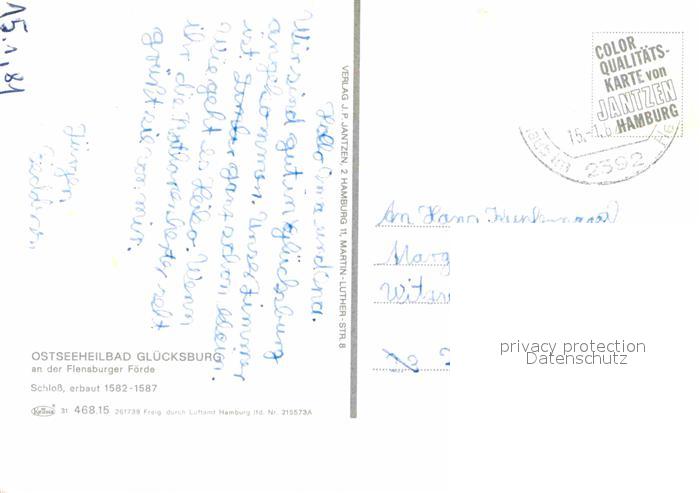 15.1.81
Hallo Oma und Ina.
Wir sind gut in Glücksburg
angekommen. Unser Zimmer
ist ganz schön klein.
Wie geht es Heiko. Wenn
ihr die seht
grüßt sie von mir.
Jürgen
OSTSEEHEILBAD GLÜCKSBURG
an der Flensburger Förde
Schloß, erbaut 1582-1587
Krüger 31 468.15 261739 Freig. durch Luftamt Hamburg lfd. Nr. 215573A
VERLAG J. P. JANTZEN, 2 HAMBURG 11, MARTIN-LUTHER-STR. 8
COLOR
QUALITÄTS-
KARTE von
JANTZEN
HAMBURG
15.-1.8
2392
An Hans
Marg
Witzn
privacy protection
Datenschutz